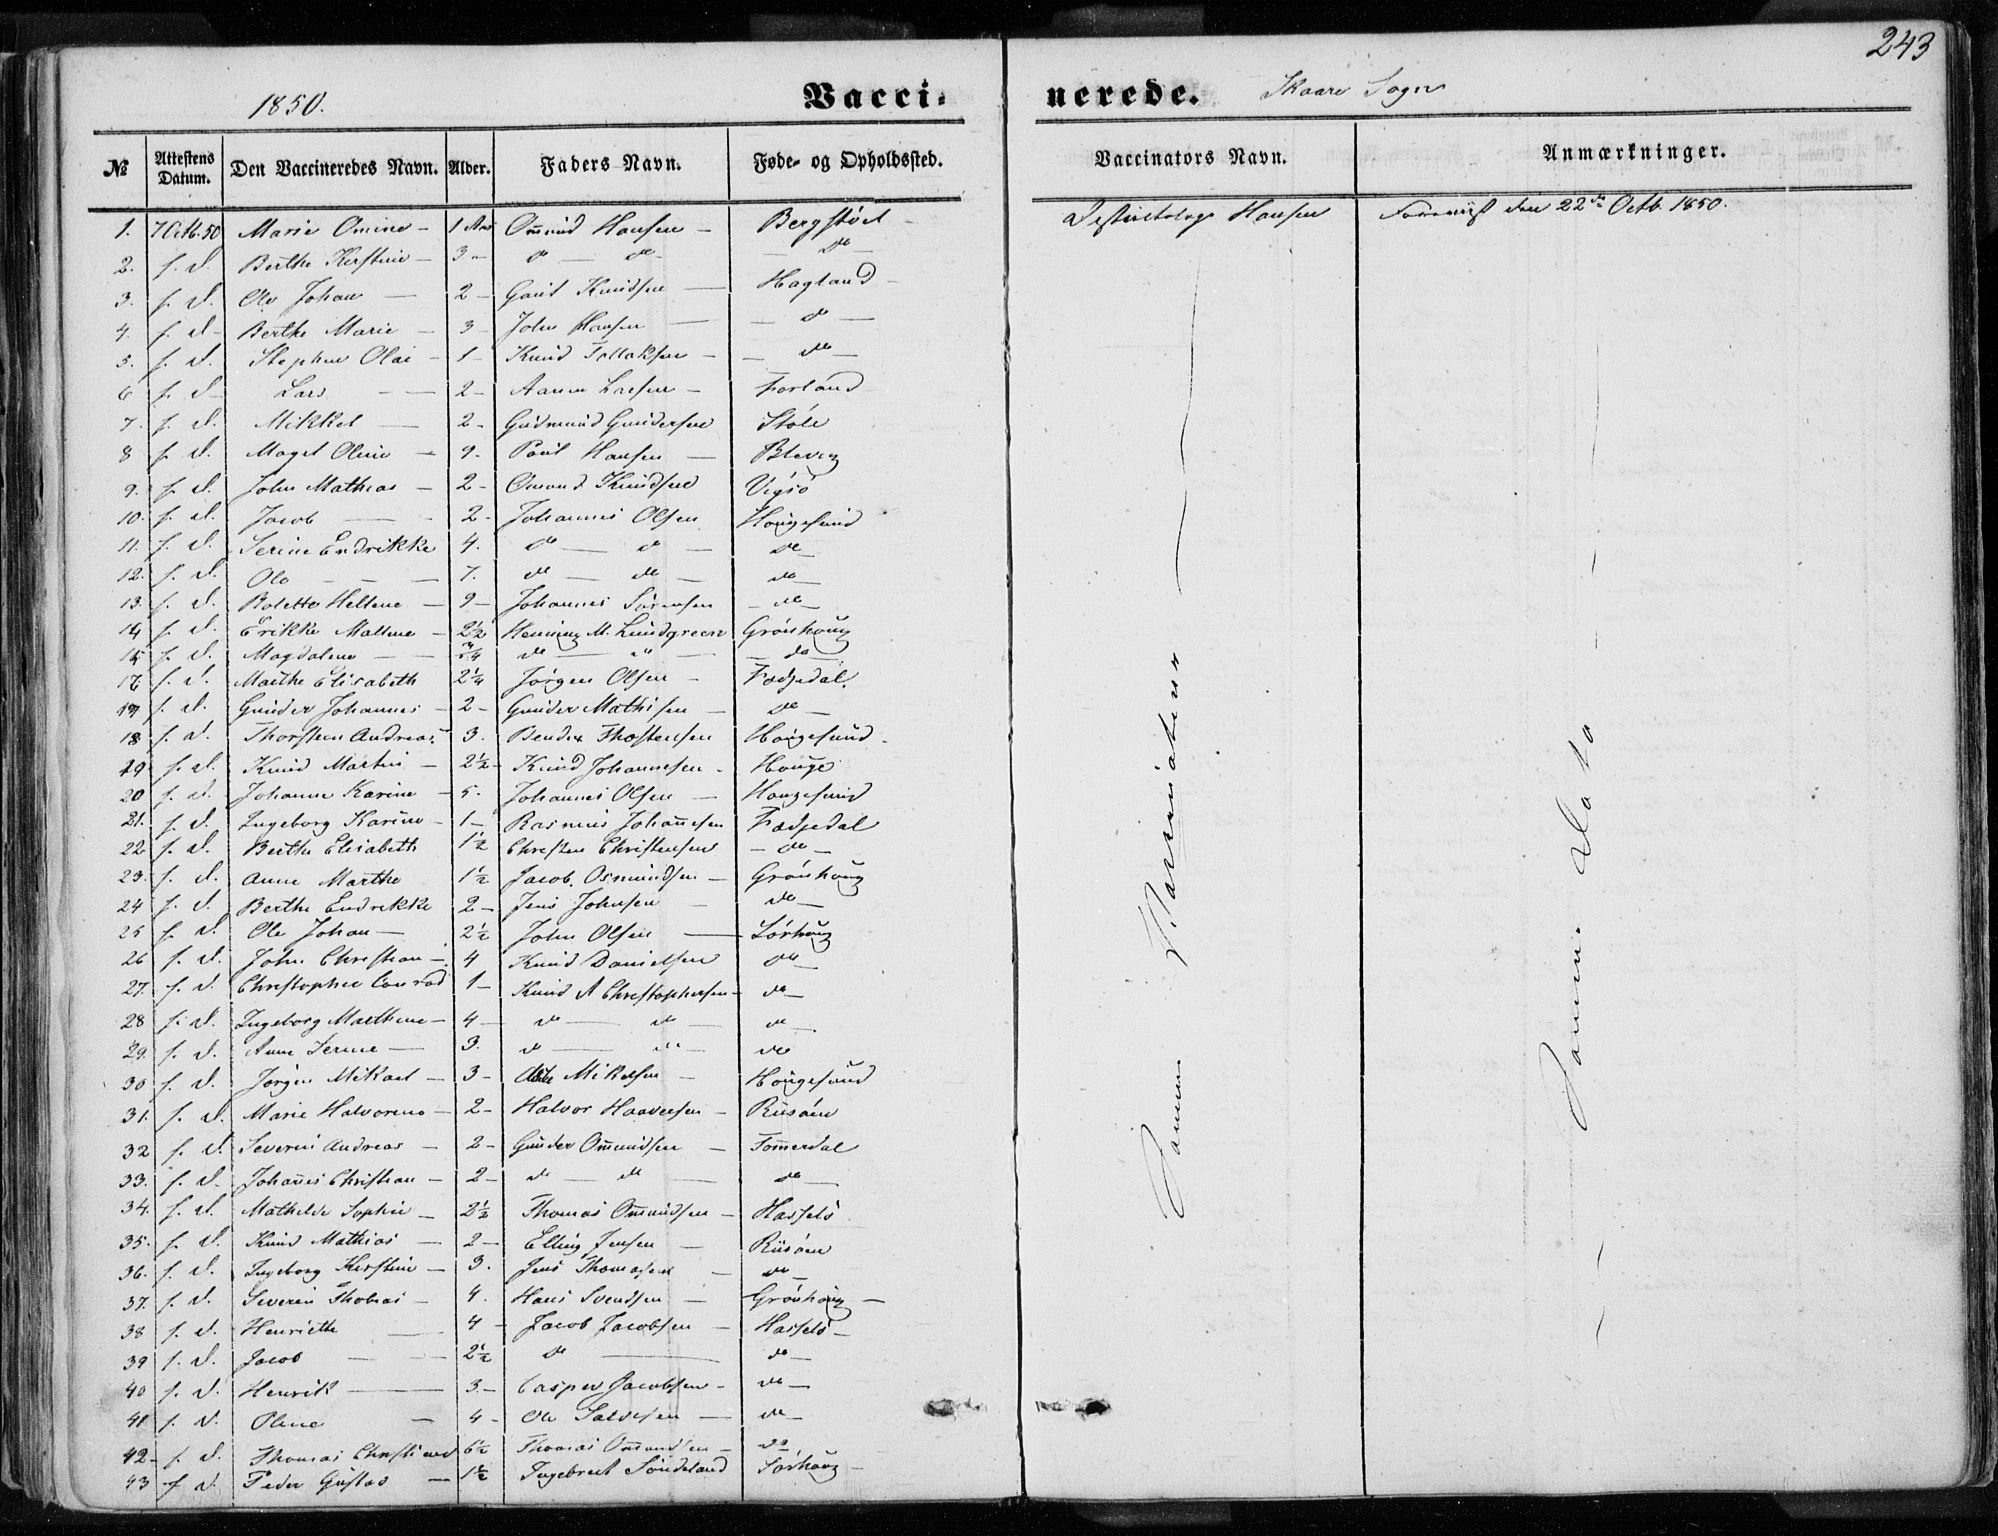 243
1850.
Vacci- nerede. Skaare Sogn
№ Attestens Datum. Den Vaccineredes Navn. Alder. Faders Navn. Føde- og Opholdssted. Vaccinators Navn. Anmærkninger.
1. 7 Octb. 50 Marie Omine - 1 Aar Om̄und Hansen - Bergstøel Hansen den 22de Octb. 1850.
2. f. d. Berthe Kirstine - 3 - do — do - — do —
3. f. d. Ole Johan — 2 - Gaut Knudsen — Hagland -
4. f. d. Berthe Marie - 3 - John Hansen — — do —
5. f. d. Stephen Olai - 1 - Knud Tollaksen - — do —
6 f. d. Lars — — 2 - Aanen Larsen - Førland
7. f. d. Mikkel — 2 - Gudmund Gundersen Støle
8 f. d. Magel Oline - 9. Poul Hansen — Bleveg
9. f. d. John Mathias - 2 - Omund Knudsen Vigsö
10. f. d. Jacob — - 2 - Johannes Olsen Hougesund
11. f. d. Serine Endrikke 4. do — do — do —
12. f. d. Ole — — — 7. do — do — do —
13. f. d. Bolette Hellene - 9 - Johannes Sörensen - do —
14 f. d. Erikke Mallene - 2½ Henning M. Lundgreen Grönhoug
15 f. d. Magdalene — — ¾ do — " — — do —
16 f. d. Marthe Elisabeth 2¼ Jörgen Olsen - Fædjedal.
17 f. d. Gunder Johannes - 2 - Gunder Mathisen — do —
18 f. d. Thorsten Andreas 3. Bendix Thostensen Hougesund -
19 f. d. Knud Martin - 2½ - Knud Johannesen - Houge
20 f. d. Johanne Karine - 5. Johannes Olsen — Hougesund
21. f. d. Ingeborg Karine - 1 - Rasmus Johan̄esen Fædjedal
22 f. d. Berthe Elisabeth 1½ Christen Christensen — do —
23. f. d. Anne Marthe 1½ Jacob Osmundsen - Grönhoug
24 f. d. Berthe Endrekke 2 - Jens Johnsen — do —
25 f. d. Ole Johan — 2½ John Olsen — Sörhoug
26 f. d. John Christian - 4 Knud Danielsen do —
27. f. d. Christopher Conrad 1 - Knud A Christophersen - do —
28 f. d. Ingeborg Marthene - 4 - do — do — do —
29. f. d. Anne Serine — 3. do — do — do
30 f. d. Jörgen Mikael - 3 - Mikelsen - Hougesund
31. f. d. Marie Halvorine - 2 - Halvor Haaversen - Riisöen
32 f. d. Severin Andreas - 2 - Gunder Om̄undsen - Tom̄erdal
33. f. d. Johan̄es Christian - 2 - do — do — do —
34. f. d. Mathilde Sophie - 2½ Thomas Om̄undsen - Hasselö
35. f. d. Knud Mathias - 2 - Elling Jensen - Riisöen
36. f. d. Ingeborg Kirstine - 3. Jens Thomasen — do —
37. f. d. Severin Thomas - 4. Hans Svendsen - Grönhoug -
38 f. d. Henriette — 4 - Jacob Jacobsen - Hasselö -
39 f. d. Jacob — — 2½ do — do —
40 f. d. Henrik — 3 - Casper Jacobsen - do —
41 f. d. Oline - 4 - Ole Salvesen — do —
42 - f. d. Thomas 6½ Thomas Om̄undsen - do
43 f. d. Peder Gustav - 1½ Ingebret Söndeland Sörhoug -
Samme Vaccinateur
Samme Dato